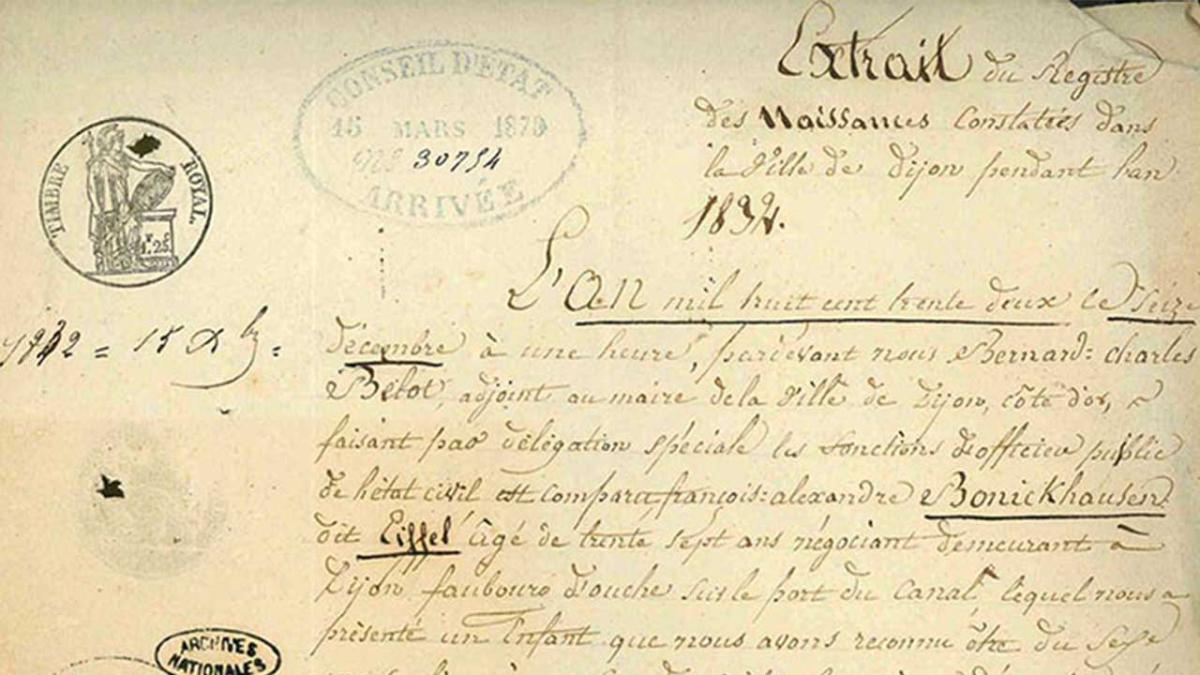 Extrait du Registre
des Naissances Constatées dans
la Ville de Dijon pendant l'an
1832.
CONSEIL D'ETAT
15 MARS 1879
No 30754
ARRIVÉE
TIMBRE ROYAL.
1f. 25c
L'An mil huit cent trente deux le Seize
1832 = 15 Xbre =
décembre à une heure, pardevant nous Bernard: charles
Belot, adjoint au maire dela Ville de Dijon, côte d'or,
faisant par délégation spéciale les fonctions d'officier public
de l'état civil est comparu françois: alexandre Bonickhausen
dit Eiffel âgé de trente sept ans négociant demeurant à
Dijon faubourg d'ouche sur le port du Canal lequel nous a
présenté un Enfant que nous avons reconnu être du Sexe
ARCHIVES
NATIONALES